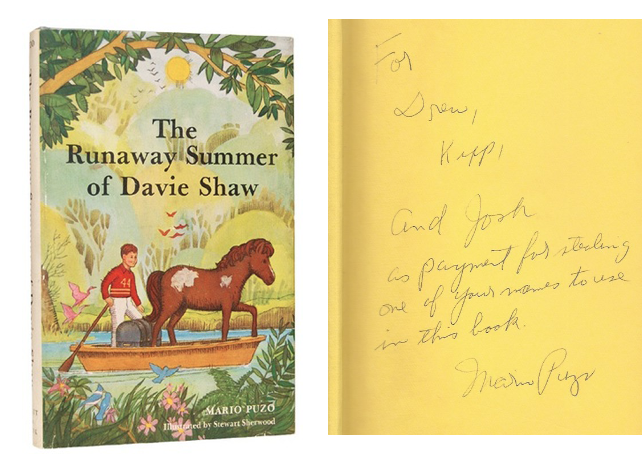 The
Runaway Summer
of Davie Shaw
44
MARIO PUZO
Illustrated by Stewart Sherwood
For
Drew,
Kippi
and Josh
as payment for stealing
one of your names to use
in this book.
Mario Puzo